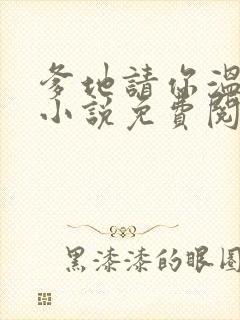 爹地請你溫
小說免費閱
黑漆漆的眼圈